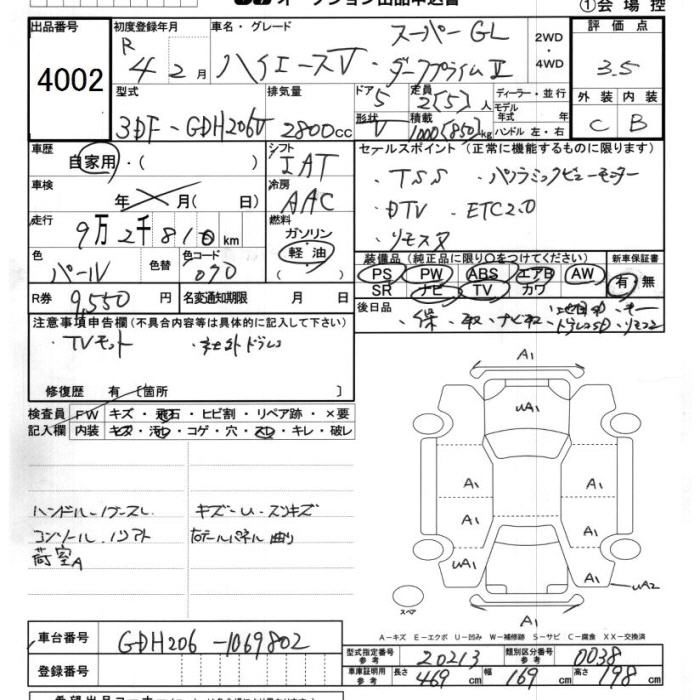 オークション出品申込書
①会場控
出品番号
4002
初度登録年月
R 4 2 月
車名・グレード
スーパーGL
ハイエースV・ダークプライムⅡ
2WD
4WD
評価点
3.5
外装 内装
C B
型式
3DF-GDH206V
排気量
2800cc
ドア 5
形状 V
定員 2(5)人
積載 1000(850)kg
ディーラー・並行
モデル
年式 年
ハンドル 左・右
車歴
自家用・( )
シフト
IAT
冷房
AAC
車検
年 月( 日)
走行
9万2千81 km
燃料
ガソリン
軽油
色
パール
色替
色コード
070
R券
9,550 円
名変通知期限 月 日
セールスポイント(正常に機能するものに限ります)
・TSS ・パノラミックビューモニター
・DTV ・ETC2.0
・リモスタ
装備品(純正品に限り○をつけてください)
PS PW ABS エアB AW
SR ナビ TV カワ
新車保証書
有 無
後日品
・保・取・ナビ取
注意事項申告欄(不具合内容等は具体的に記入して下さい)
・TVキット ・社外ドラレコ
修復歴 有 〔箇所 〕
検査員 FW キズ・飛石・ヒビ割・リペア跡・×要
記入欄 内装 キズ・汚れ・コゲ・穴・スレ・キレ・破レ
ハンドル・ノブスレ
コンソール・シフト
荷室A
キズ・U・スリキズ
A1
uA1
A1
A1
A1
A1
uA1
uA1
A1
uA2
A1
スペア
A-キズ E-エクボ U-凹み W-補修跡 S-サビ C-腐食 XX-交換済
車台番号
GDH206-1069802
登録番号
型式指定番号
参考
20213
類別区分番号
参考
0038
車庫証明用
参考
長さ 469 cm
幅 169 cm
高さ 198 cm